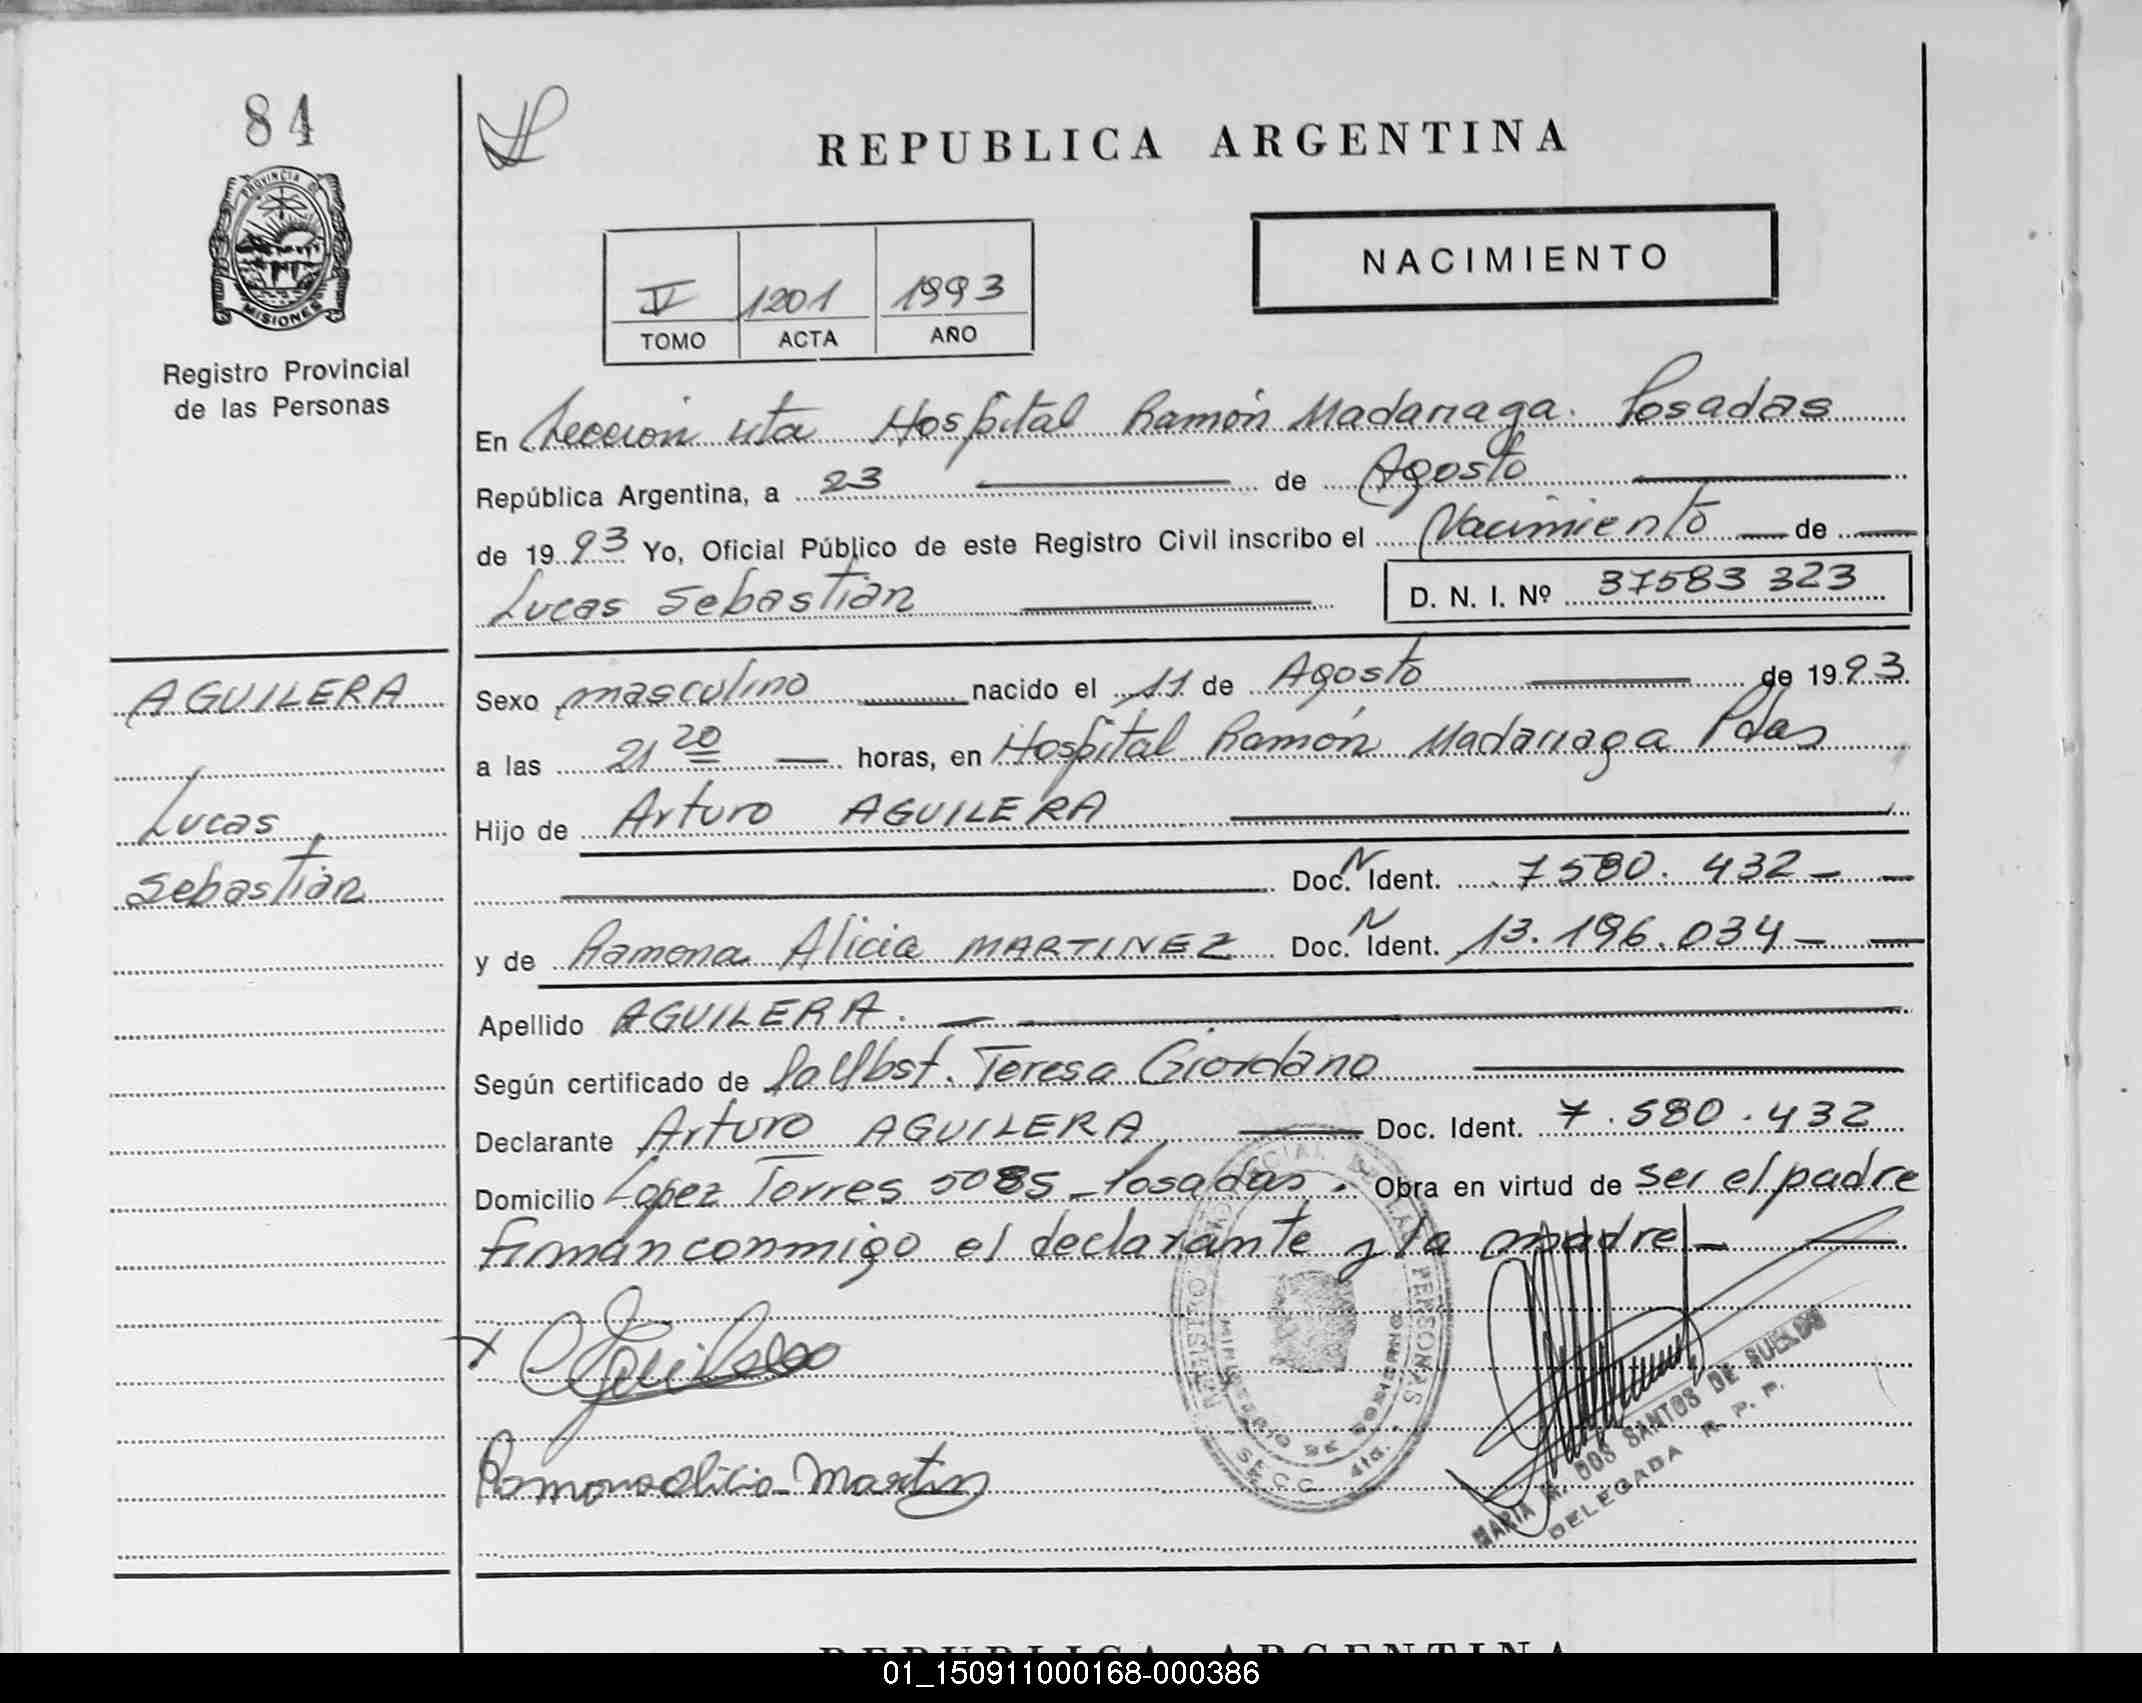 84
REPUBLICA ARGENTINA
PROVINCIA DE
MISIONES
Registro Provincial
de las Personas
NACIMIENTO
V 1201 1993
TOMO ACTA AÑO
En Sección 4ta Hospital Ramón Madariaga. Posadas
República Argentina, a 23 de Agosto
de 1993 Yo, Oficial Público de este Registro Civil inscribo el Nacimiento de
Lucas Sebastián D. N. I. Nº 37583 323
AGUILERA
Lucas
Sebastián
Sexo masculino nacido el 11 de Agosto de 1993
a las 21 20 horas, en Hospital Ramón Madariaga Pdas
Hijo de Arturo AGUILERA
Doc. N Ident. 7580.432
y de Ramona Alicia MARTINEZ Doc. N Ident. 13.196.034
Apellido AGUILERA.
Según certificado de la Obst. Teresa Giordano
Declarante Arturo AGUILERA Doc. Ident. 7.580.432
Domicilio Lopez Torres 5085 - Posadas. Obra en virtud de ser el padre
firman conmigo el declarante y la madre
Ramona Alicia Martin
REGISTRO PROVINCIAL DE LAS PERSONAS
MINISTERIO DE GOBIERNO
SECC. 4ta.
MARIA DOS SANTOS DE
DELEGADA R. P. P.
REPUBLICA ARGENTINA
01_150911000168-000386